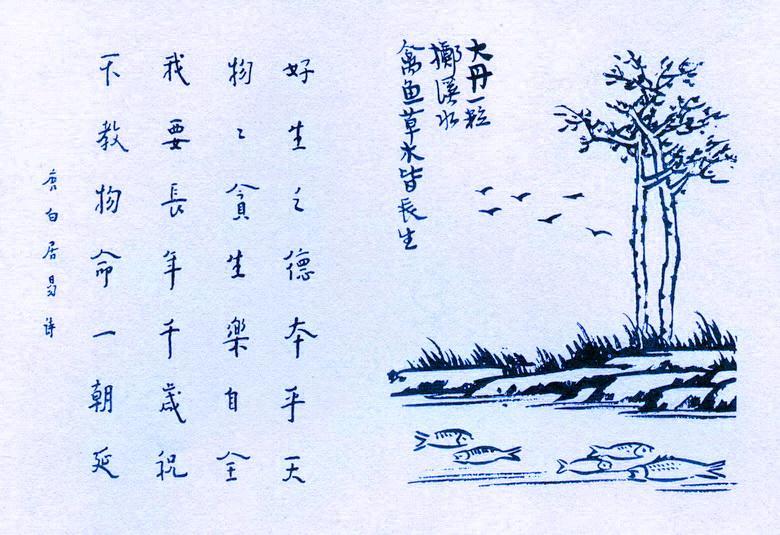 大丹一粒
擲溪水
禽鱼草木皆長生
好生之德本乎天
物〻貪生樂自全
我要長年千歲祝
不教物命一朝延
唐白居易诗